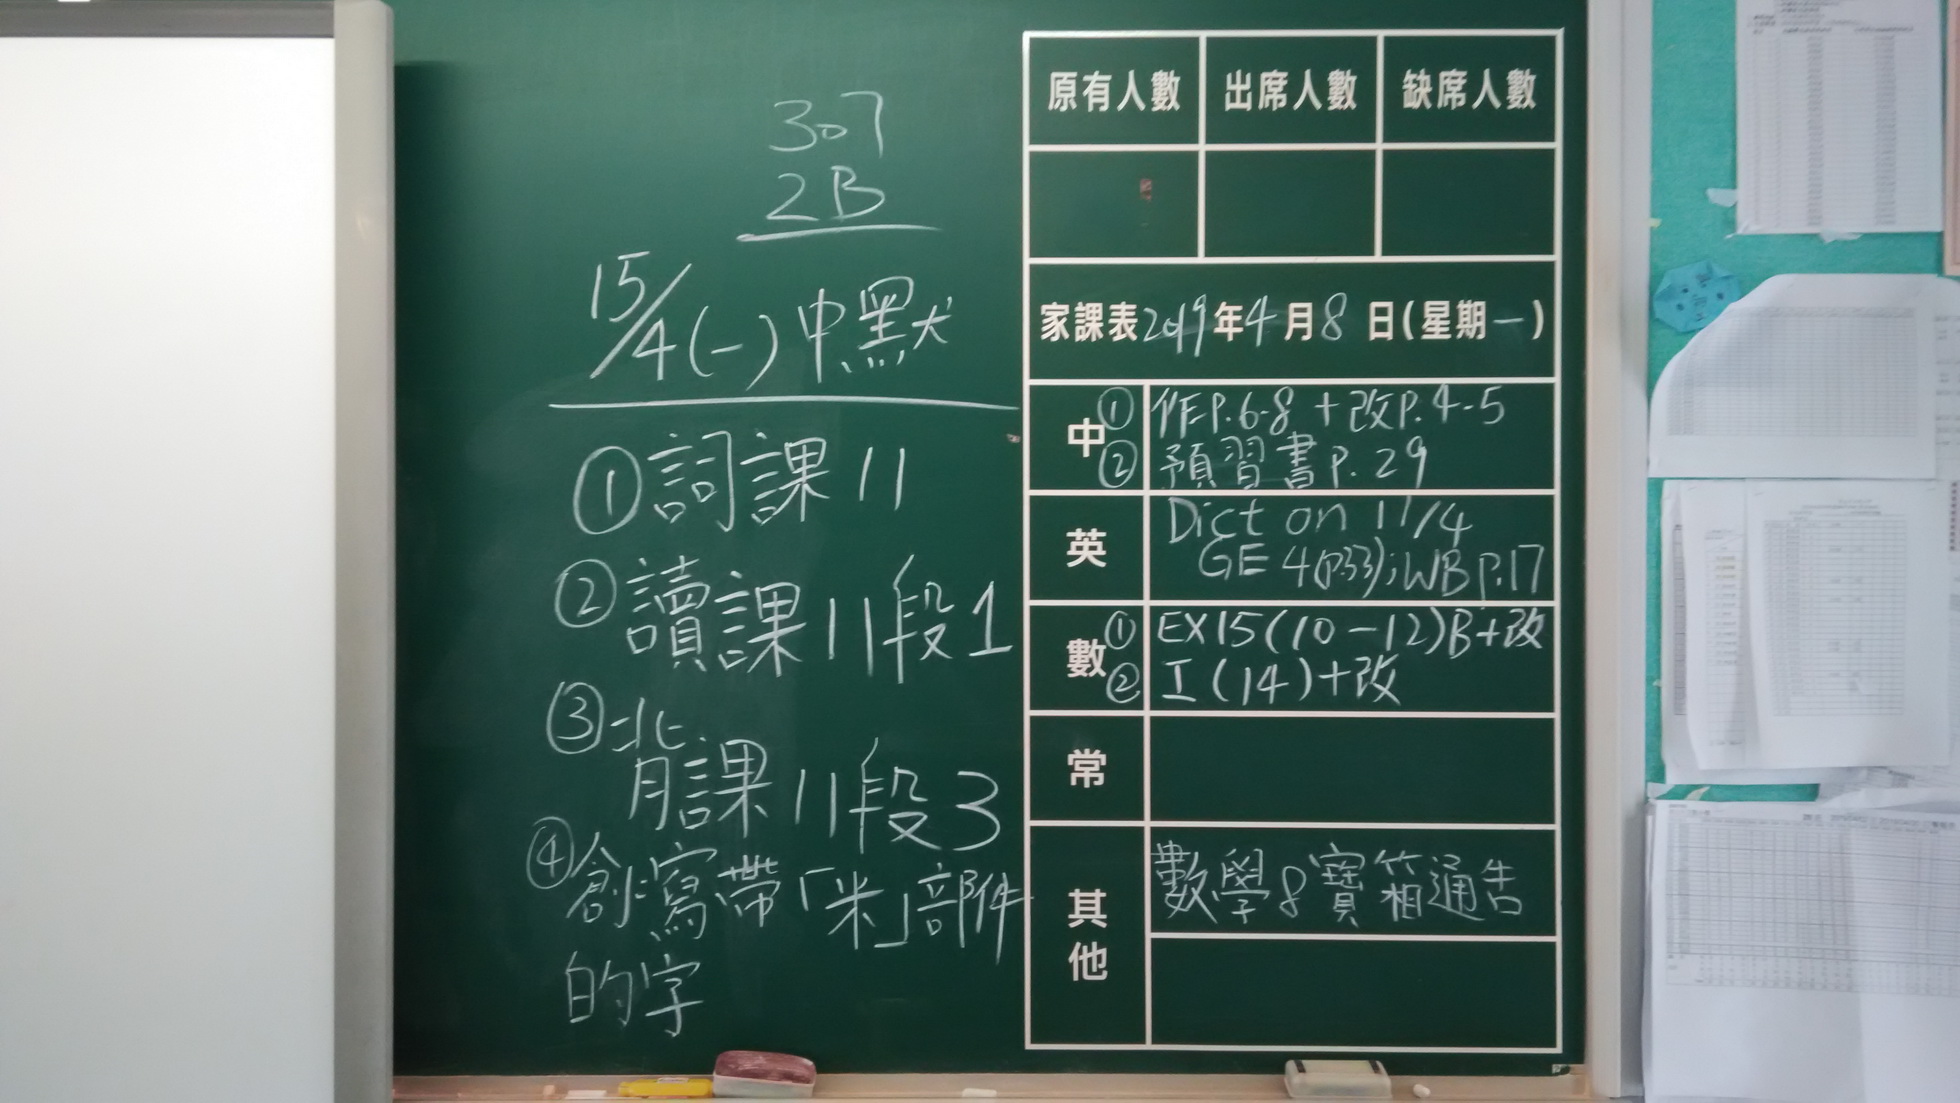 307
2B
15/4(一)中默
①詞課11
②讀課11段1
③背課11段3
④創寫帶「米」部件
的字
原有人數 出席人數 缺席人數
家課表2019年4月8日(星期一)
中 ①作P.6-8+改P.4-5
②預習書P.29
英 Dict on 11/4
GE 4(p.33);WB p.17
數 ①EX15(10-12)B+改
②工(14)+改
常
其他 數學8寶箱通告